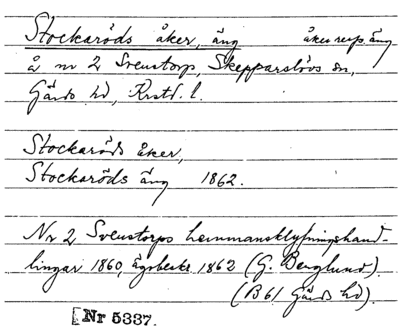 Stockaröds åker, äng åker resp. äng
å nr 2 Svenstorp, Skepparslövs sn,
Gärds hd, Krstd. l.
Stockaröds åker,
Stockaröds äng 1862.
Nr 2 Svenstorps hemmansklyfningshand-
lingar 1860, Ägobeskr. 1862 (G. Berglund).
(B61 Gärds hd).
Nr 5337.